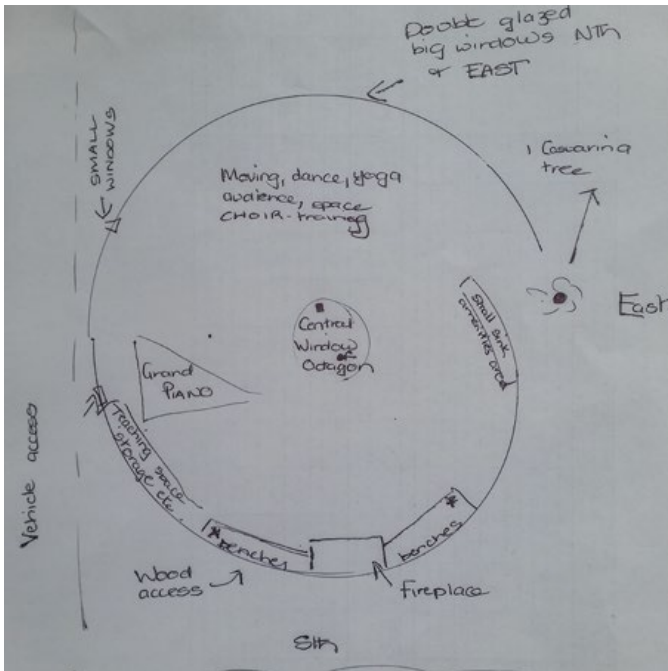 Double glazed
big windows Nth
& EAST
SMALL
WINDOWS
1 Casuarina
tree
Moving, dance, yoga
audience, space
CHOIR-training
East
Central
Window
Octagon
Small sink
amenities area
Grand
PIANO
Vehicle access
Teaching space
storage etc.
* benches
benches *
Wood
access
fireplace
Sth